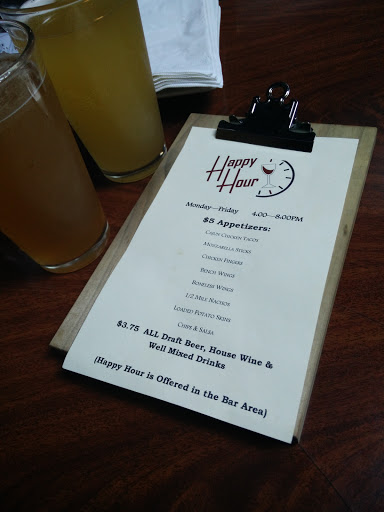 Happy
Hour
Monday—Friday 4.00—8.00PM
$5 Appetizers:
Cajun Chicken Tacos
Mozzarella Sticks
Chicken Fingers
Bench Wings
Boneless Wings
1/2 Mile Nachos
Loaded Potato Skins
Chips & Salsa
$3.75 ALL Draft Beer, House Wine &
Well Mixed Drinks
(Happy Hour is Offered in the Bar Area)